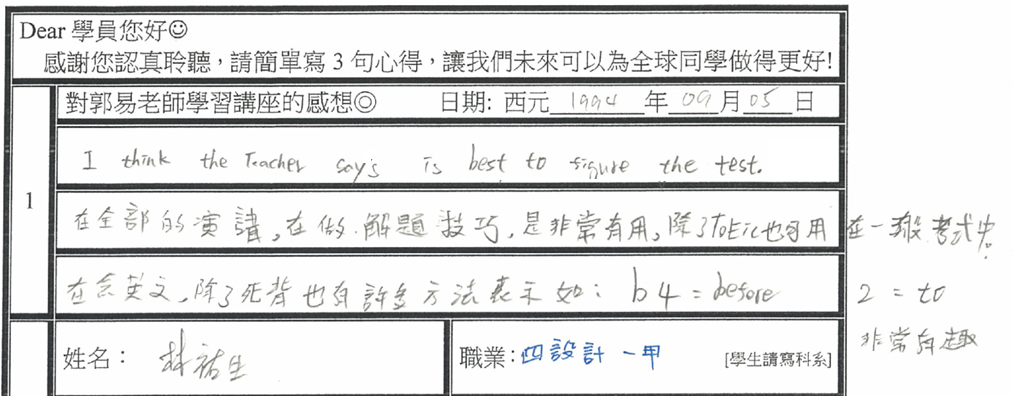 Dear 學員您好☺
感謝您認真聆聽，請簡單寫 3 句心得，讓我們未來可以為全球同學做得更好!
1
對郭易老師學習講座的感想◎ 日期: 西元 1994 年 09 月 05 日
I think the Teacher say's is best to figure the test.
在全部的演講，在做解題技巧，是非常有用，除了ToEic也可用在一般考式中。
在念英文，除了死背也有許多方法表示如：b4 = before 2 = to
非常有趣
姓名： 林祐生 職業：四設計一甲 [學生請寫科系]